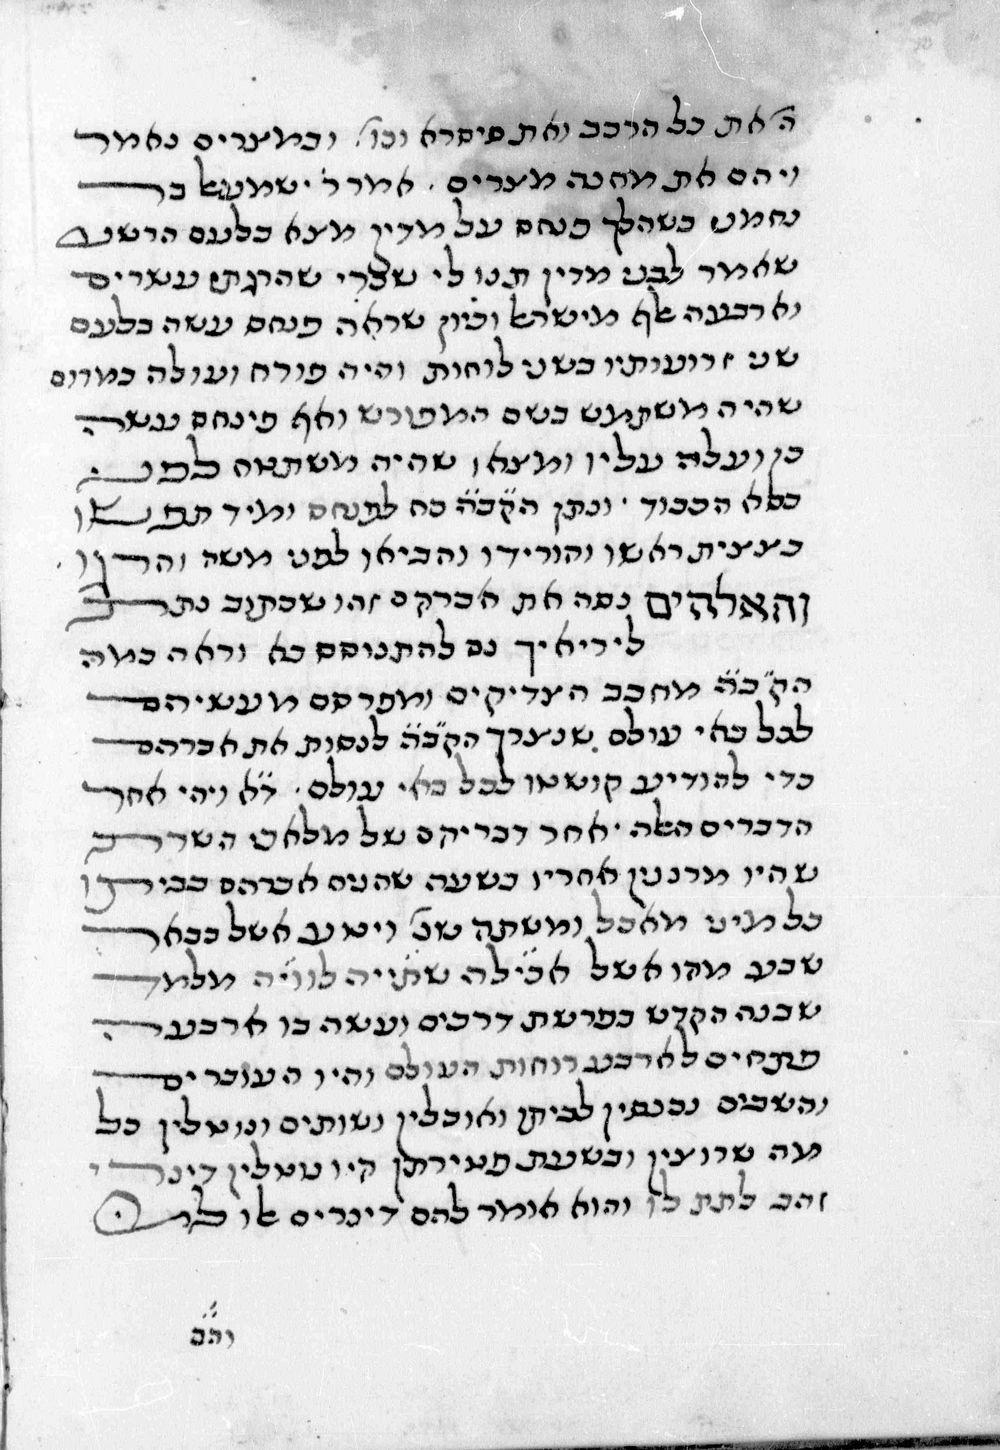 ה' את כל הרכב ואת סיסרא וכו'. ובמצרים נאמר
ויהם את מחנה מצרים. אמר ר' ישמעאל בר
נחמני כשהלך פנחס על מדין מצא בלעם הרשע
שאמר לבני מדין תנו לי שכרי שהרגתי עשרים
וארבעה אלף מישראל וכיון שראה פנחס עשה בלעם
שני זרועותיו כשני לוחות והיה פורח ועולה במרום
שהיה משתמש בשם המפורש ואף פינחס עשה
כן ועלה עליו ומצאו שהיה משתטח לפני
כסא הכבוד. ונתן הק"ב"ה כח לפנחס ומיד תפשו
בציצית ראשו והורידו והביאו לפני משה והרגו.
והאלהים נסה את אברהם זהו שכתוב נתת
ליריאיך נס להתנוסס בא וראה כמה
הק"ב"ה מחבב הצדיקים ומפרסם מעשיהם
לכל באי עולם. שנצרך הק"ב"ה לנסות את אברהם
כדי להודיע קושטו לכל באי עולם. ד"א ויהי אחר
הדברים האלה. אחר דבריהם של מלאכי השרת
שהיו מרננין אחריו בשעה שהניח אברהם בביתו
כל מיני מאכל ומשתה שנ' ויטע אשל בבאר
שבע מהו אשל אכילה שתייה לוויה מלמד
שבנה הקדש בפרשת דרכים ועשה בו ארבעה
פתחים לארבע רוחות העולם והיו העוברים
והשבים נכנסין לביתו ואוכלין ושותים ונוטלין כל
מה שרוצין ובשעת פטירתן היו נוטלין דינרי
זהב לתת לו והוא אומר להם דינרים אלו
והב